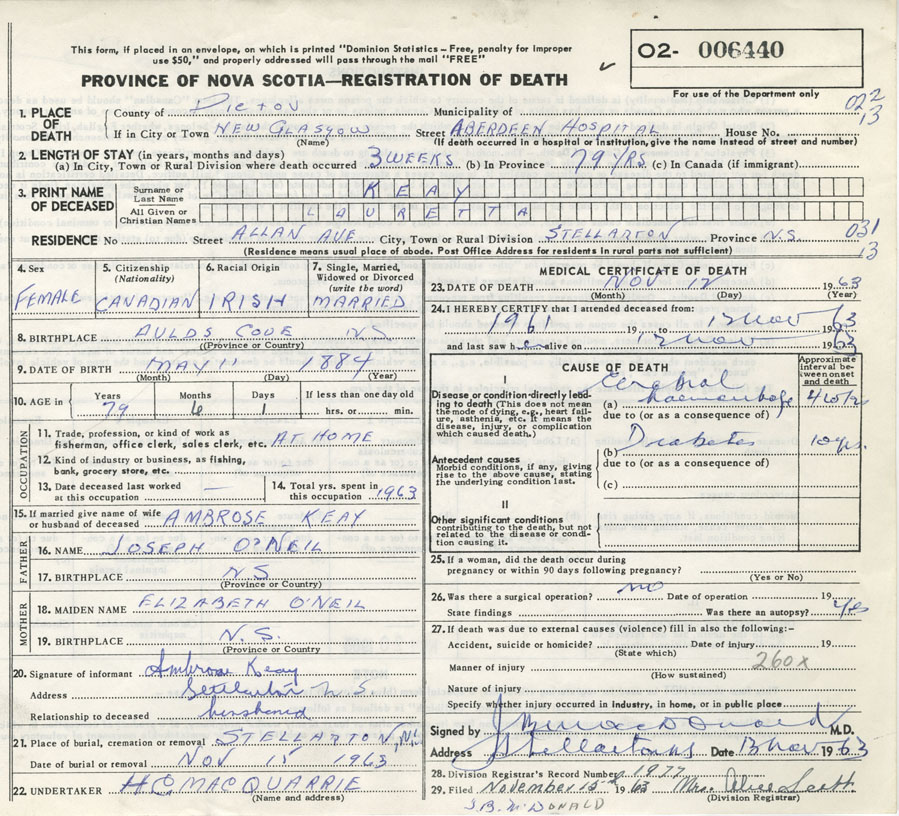 This form, if placed in an envelope, on which is printed "Dominion Statistics - Free, penalty for improper
use $50," and properly addressed will pass through the mail "FREE"
✓
O2- 006440
For use of the Department only
PROVINCE OF NOVA SCOTIA—REGISTRATION OF DEATH
022
13
1. PLACE OF DEATH
County of Pictou Municipality of
If in City or Town NEW GLASGOW Street ABERDEEN HOSPITAL House No.
(Name) (If death occurred in a hospital or institution, give the name instead of street and number)
2. LENGTH OF STAY (in years, months and days)
(a) In City, Town or Rural Division where death occurred 3 WEEKS (b) In Province 79 YRS (c) In Canada (if immigrant)
3. PRINT NAME OF DECEASED
Surname or Last Name KEAY
All Given or Christian Names LAURETTA
RESIDENCE No Street ALLAN AVE City, Town or Rural Division STELLARTON Province N.S. 031
13
(Residence means usual place of abode. Post Office Address for residents in rural parts not sufficient)
4. Sex
FEMALE
5. Citizenship
(Nationality)
CANADIAN
6. Racial Origin
IRISH
7. Single, Married,
Widowed or Divorced
(write the word)
MARRIED
8. BIRTHPLACE AULDS COVE NS
((Province or Country)
9. DATE OF BIRTH MAY 11 1884
(Month) (Day) (Year)
10. AGE in
Years
79
Months
6
Days
1
If less than one day old
hrs. or min.
OCCUPATION
11. Trade, profession, or kind of work as
fisherman, office clerk, sales clerk, etc. AT HOME
12. Kind of industry or business, as fishing,
bank, grocery store, etc.
13. Date deceased last worked
at this occupation —
14. Total yrs. spent in
this occupation 1963
15. If married give name of wife
or husband of deceased AMBROSE KEAY
FATHER
16. NAME JOSEPH O'NEIL
17. BIRTHPLACE N.S
(Province or Country)
MOTHER
18. MAIDEN NAME ELIZABETH O'NEIL
19. BIRTHPLACE N.S.
(Province or Country
20. Signature of informant Ambrose Keay
Address N S
Relationship to deceased
21. Place of burial, cremation or removal STELLARTON, N.S.
Date of burial or removal NOV 15 1963
22. UNDERTAKER H.C. MACQUARRIE
(Name and address)
MEDICAL CERTIFICATE OF DEATH
23. DATE OF DEATH NOV 12 1963
(Month) (Day) (Year)
24. I HEREBY CERTIFY that I attended deceased from:
1961 19 to 12 nov 1963
and last saw h er alive on 12 nov 1963
CAUSE OF DEATH
Approximate
interval be-
tween onset
and death
I
Disease or condition directly lead-
ing to death (This does not mean
the mode of dying, e.g., heart fail-
ure, asthenia, etc. It means the
disease, injury, or complication
which caused death.)
Cerebral
(a) haemorrhage
due to (or as a consequence of)
Diabetes 10 yrs.
(b)
due to (or as a consequence of)
Antecedent causes
Morbid conditions, if any, giving
rise to the above cause, stating
the underlying condition last.
(c)
II
Other significant conditions
contributing to the death, but not
related to the disease or condi-
tion causing it.
25. If a woman, did the death occur during
pregnancy or within 90 days following pregnancy?
(Yes or No)
26. Was there a surgical operation? no Date of operation 19
State findings Was there an autopsy? Yes
27. If death was due to external causes (violence) fill in also the following:-
Accident, suicide or homicide? Date of injury 19
(State which)
Manner of injury 260x
(How sustained)
Nature of injury
Specify whether injury occurred in Industry, in home, or in public place
Signed by MacDonald M.D.
Address Stellarton ns Date 13 Nov 1963
28. Division Registrar's Record Number 1977
29. Filed November 15 1963 Mrs. Alice Scott
(Division Registrar)
J.B. McDONALD